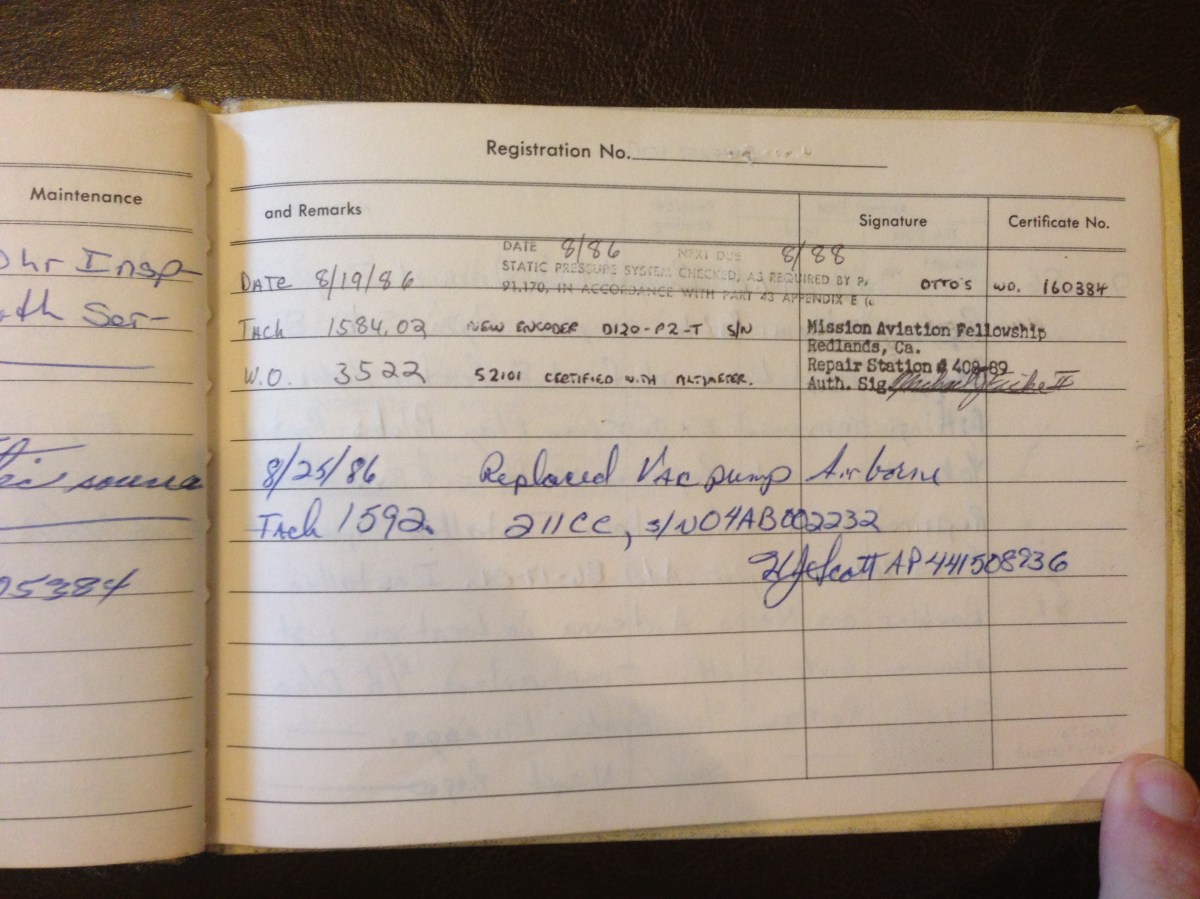 Maintenance
0hr Insp-
th Ser-
5384
Registration No.
and Remarks
Signature
Certificate No.
DATE 8/86 NEXT DUE 8/88
STATIC PRESSURE SYSTEM CHECKED, AS REQUIRED BY
91.170, IN ACCORDANCE WITH PART 43 APPENDIX E
DATE 8/19/86
OTTO'S WO. 160384
TACH 1584.02 NEW ENCODER D120-P2-T S/N
W.O. 3522 52101 CERTIFIED WITH ALTIMETER.
Mission Aviation Fellowship
Redlands, Ca.
Repair Station # 408-89
Auth. Sig.
8/25/86 Replaced Vac pump Airborne
Tach 1592. 211CC, S/N04AB002232
Scott AP 441508936